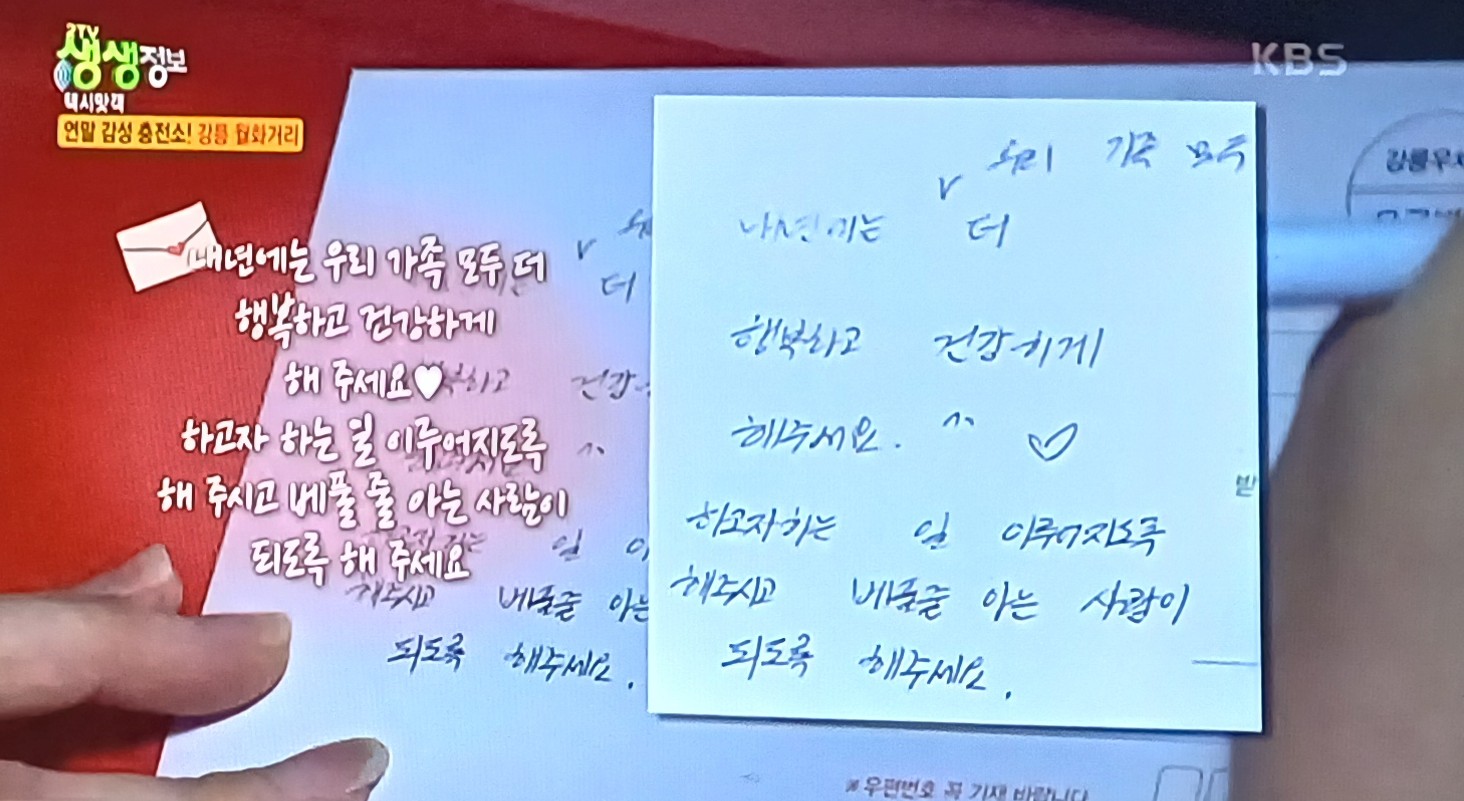 2TV
생생정보
택시맛객
연말 감성 충전소! 강릉 월화거리
KBS
내년에는 우리 가족 모두 더
행복하고 건강하게
해 주세요♥
하고자 하는 일 이루어지도록
해 주시고 베풀 줄 아는 사람이
되도록 해 주세요
우리
더
행복하고 건강
하는 일 이
해주시고 베풀줄 아는
되도록 해주세요.
우리 가족 모두
v
내년에는 더
행복하고 건강하게
해주세요. ^^ ♡
하고자하는 일 이루어지도록
해주시고 베풀줄 아는 사람이
되도록 해주세요.
강릉우체
받
※우편번호 꼭 기재 바랍니다